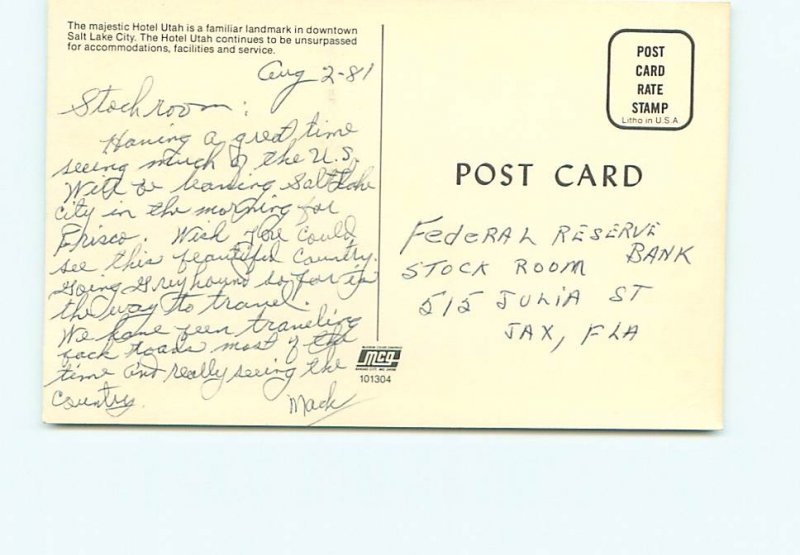 The majestic Hotel Utah is a familiar landmark in downtown
Salt Lake City. The Hotel Utah continues to be unsurpassed
for accommodations, facilities and service.
Aug 2-81
Stockroom:
Having a great time
seeing much of the U.S.
Will be leaving Salt Lake
City in the morning for
Frisco. Wish you could
see this beautiful country.
Going Greyhound so far is
the way to travel.
We have been traveling
back roads most of the
time and really seeing the
Country.
Mack
POST
CARD
RATE
STAMP
Litho in U.S.A.
POST CARD
FEDERAL RESERVE
BANK
STOCK ROOM
515 JULIA ST
JAX, FLA
mcg
101304